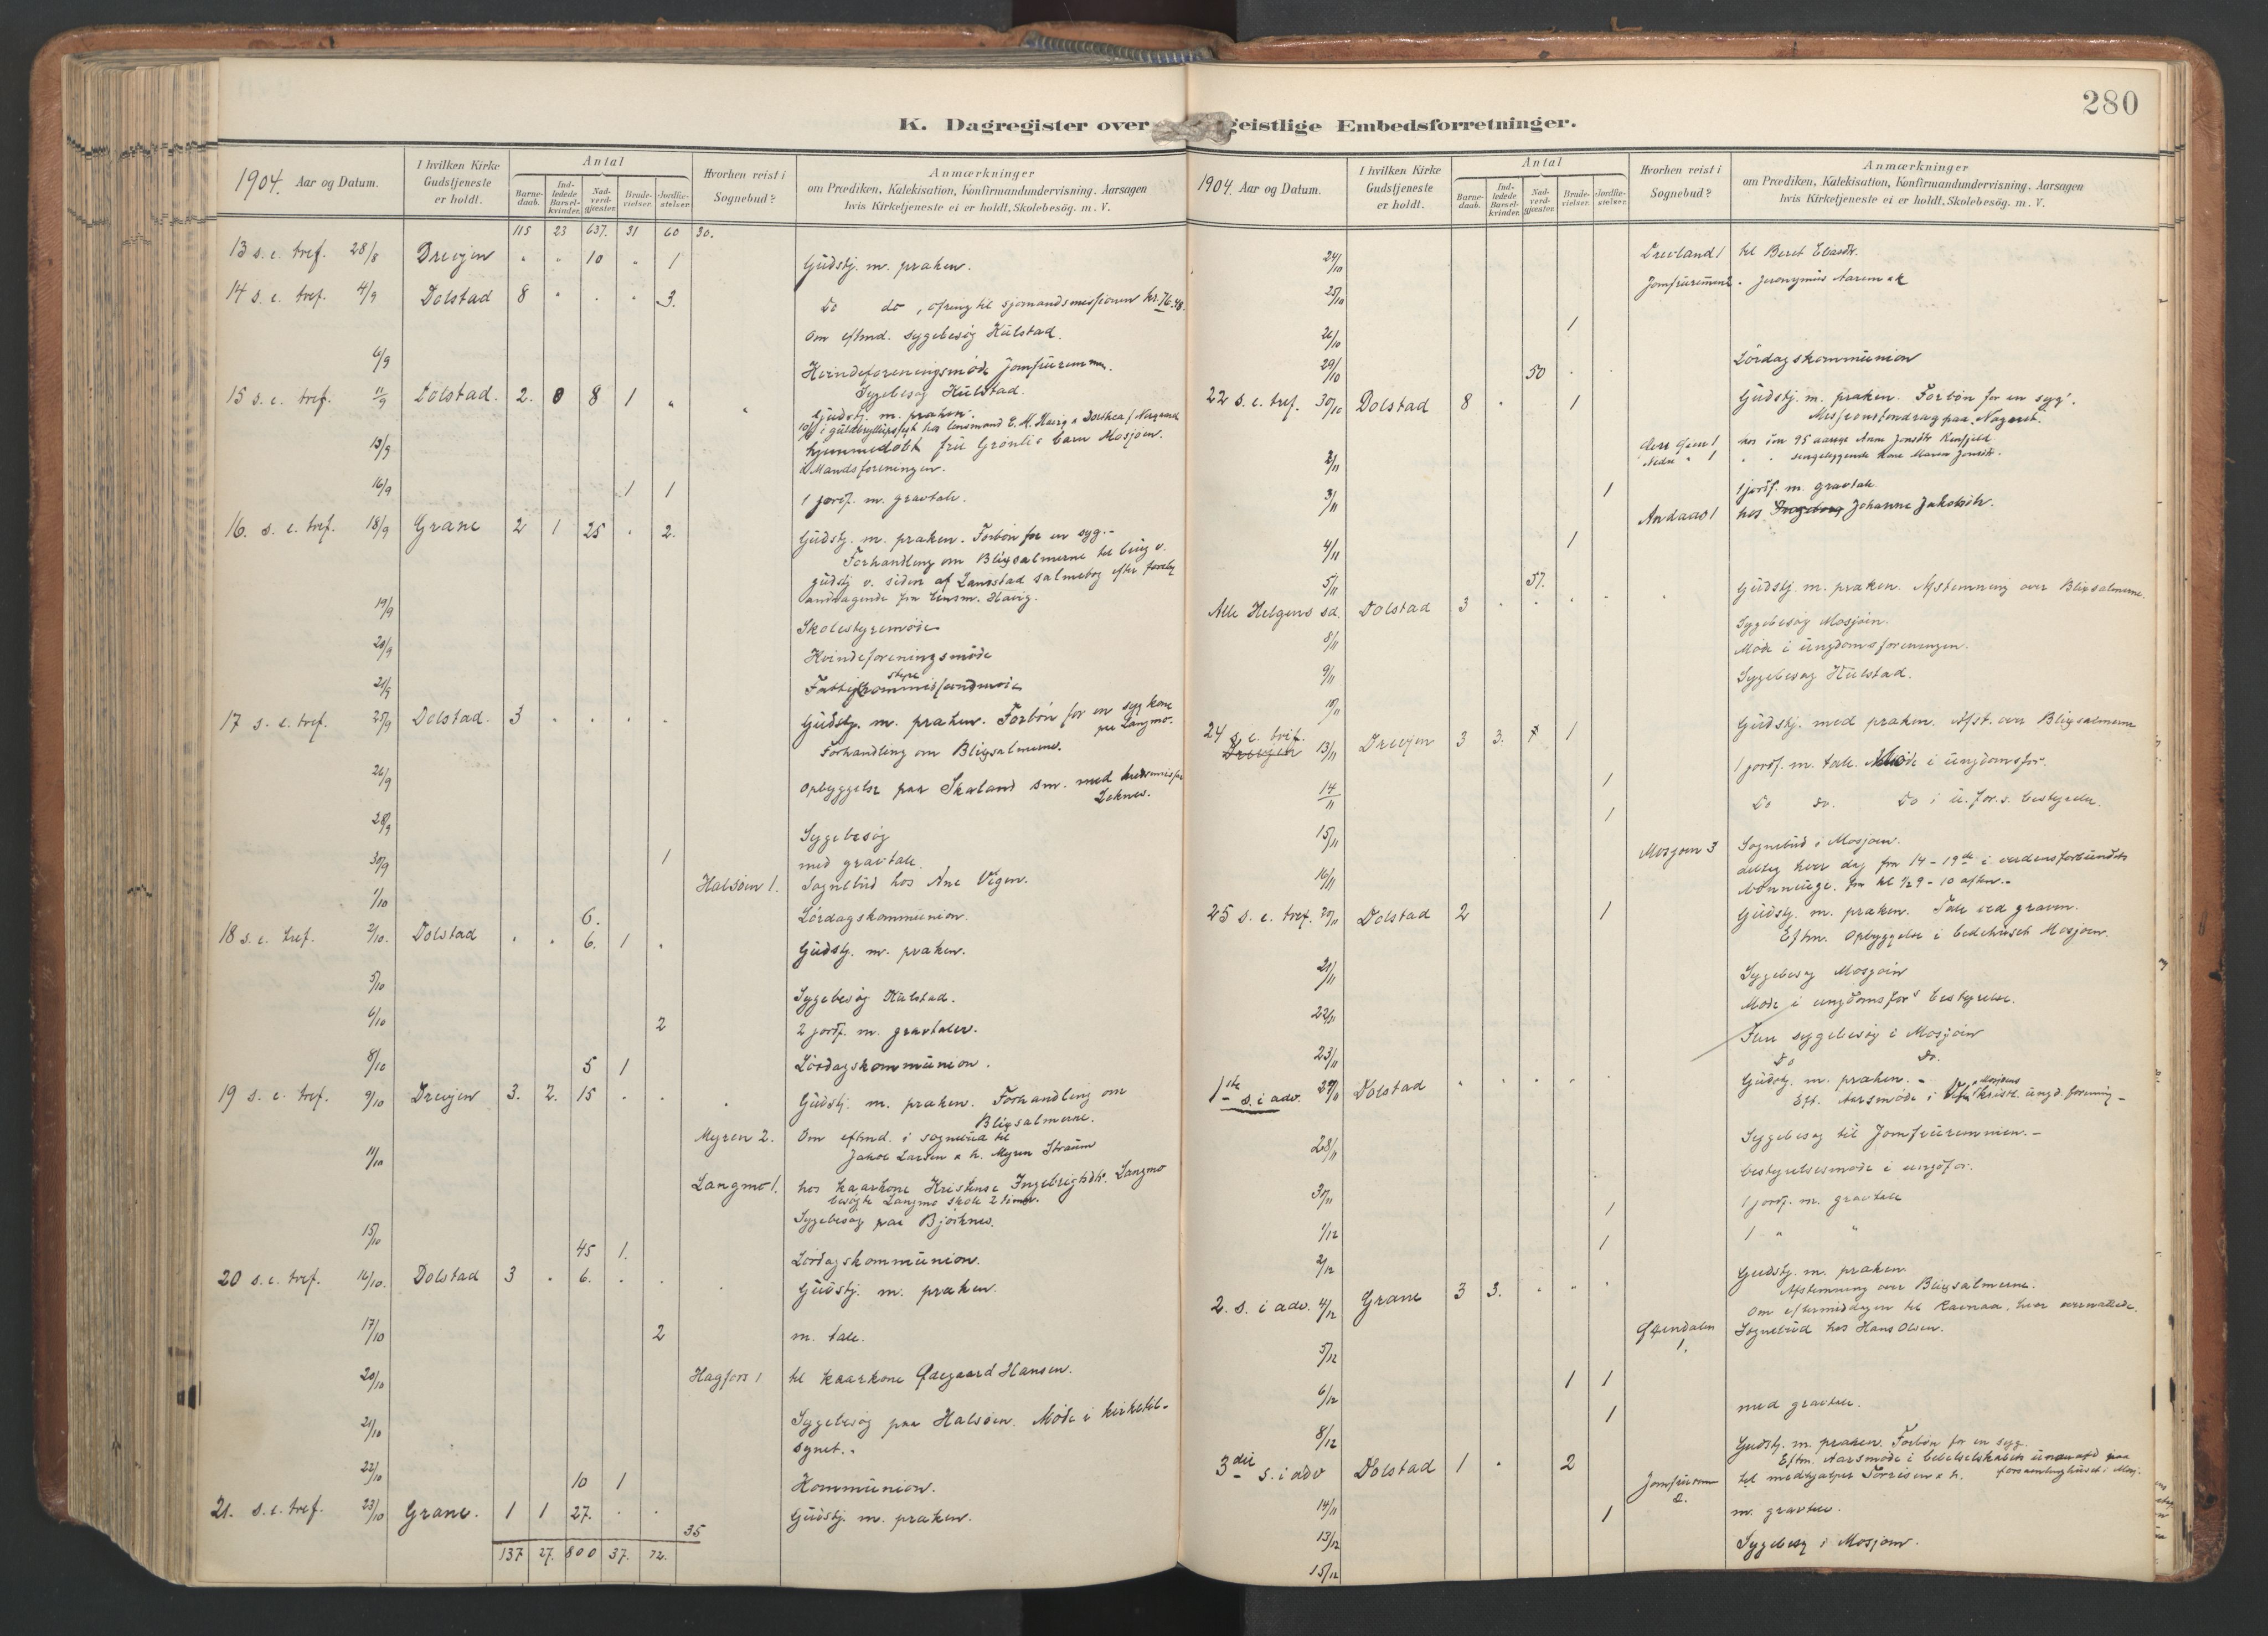 280
K. Dagregister over geistlige Embedsforretninger.
1904. Aar og Datum.
I hvilken Kirke Gudstjeneste er holdt.
Antal
Barne-daab.
Ind-ledede Barsel-kvinder.
Nad-verd-gjæster.
Brude-vielser.
Jordfæ-stelser.
Hvorhen reist i Sognebud?
Anmærkninger
om Prædiken, Katekisation, Konfirmandundervisning. Aarsagen
hvis Kirketjeneste ei er holdt, Skolebesög. m. V.
115 23 637. 31 60 30.
13 s. e. tref. 28/8 Drevjen " " 10 " 1 Gudstj. m. præken.
14 s. e. tref. 4/9 Dolstad 8 " . " 3. Do do, ofring til sjømandsmissionen kr. 76.48.
Om eftmd. sygebesøg Kulstad.
6/9 Kvindeforeningsmøde
Sygebesøg Kulstad.
15 s. e. tref. 11/9 Dolstad. 2. 0 8 1 " " Gudstj. m. præken.
13/9 hjemmedøbt fru Grønlis barn Mosjøen.
Mandsforeningen.
16/9 1 1 1 jordf. m. gravtale.
16. s. e. tref. 18/9 Grane 2 1 25 . 2. Gudstj. m. præken. Forbøn for en syg.-
Forhandling om Blixsalmerne til brug v.
gudstj. v. siden af Landstad salmebog efter
andragende fra lensm. Havig.
19/9 Skolestyremøde
20/9 Kvindeforeningsmøde
21/9
17 s. e. tref. 25/9 Dolstad. 3 . . . . Gudstj. m. præken. Forbøn for en syg kone
paa Langmo.
Forhandling om Blixsalmerne.
26/9 Opbyggelse paa Skaland sm. med
28/9 Sygebesøg
30/9 1 med gravtale.
1/10 Halsøen 1. Sognebud hos Ane Vigen.
6. Lørdagskommunion.
18 s. e. tref. 2/10. Dolstad . . 6. 1 . Gudstj. m. præken.
5/10 Sygebesøg Kulstad.
6/10 2 2 jordf. m. gravtaler.
8/10 5 1 Lørdagskommunion.
19 s. e. tref. 9/10 Drevjen 3. 2. 15 . . . Gudstj. m. præken. Forhandling om
Blixsalmerne.
Myren 2. Om eftmd. i sognebud til
Jakob Larsen & h. Myren Straum
11/10 Langmo 1. hos kaarkone Kristense Ingebrigtsdtr. Langmo
besøgte Langmo skole 2 timer.
Sygebesøg paa Bjørknes.
15/10 45 1. Lørdagskommunion.
20 s. e. tref. 16/10. Dolstad 3 . 6. . . . Gudstj. m. præken.
17/10 2 m. tale.
20/10 Hagfors 1 til kaarkone Ødegaard Hansen.
21/10 Sygebesøg paa Halsøen. Møde i kirketil-
synet.
22/10 10 1 Kommunion.
21. s. e. tref. 23/10 Grane. 1 1 27. . . Gudstj. m. præken.
35
137 27. 800 37. 72.
1904. Aar og Datum.
I hvilken Kirke Gudstjeneste er holdt.
Antal
Barne-daab.
Ind-ledede Barsel-kvinder.
Nad-verd-gjæster.
Brude-vielser.
Jordfæ-stelser.
Hvorhen reist i Sognebud?
Anmærkninger
om Prædiken, Katekisation, Konfirmandundervisning. Aarsagen
hvis Kirketjeneste ei er holdt, Skolebesög. m. V.
24/10 1 til Beret
25/10
26/10 1
29/10 50 . . Lørdagskommunion
22 s. e. tref. 30/10 Dolstad 8 . 1 Gudstj. m. præken. Forbøn for en syg.
Missionsforedrag paa Nazaret.
hos den 95 aarige Anne
sengeliggende kone Maren
2/11
3/11 1 1 jordf. m. gravtale
Andaas 1 hos Johanne Jakobsdtr.
4/11 1
5/11 57.
Alle Helgens sd. Dolstad 3 . . . . . Gudstj. m. præken. Afstemning over Blixsalmerne.
Sygebesøg Mosjøen.
8/11 Møde i ungdomsforeningen.
9/11 Sygebesøg Kulstad.
10/11
24 s. e. tref. 13/11 Drevjen 3 3. 1 Gudstj. med præken. Afst. over Blixsalmerne
1 jordf. m. tale. Møde i ungdomsfor.
14/11 1 Do do. Do i u. for.s. bestyrelse.
15/11 1
Mosjøen 3 Sognebud i Mosjøen.
16/11 deltog hver dag fra 14-19de i verdensforbundets
bønneuge. fra kl ½9 - 10 aften.-
25 s. e. tref. 20/11 Dolstad 2 1 Gudstj. m. præken. Tale ved graven.
Eftm. Opbyggelse i bedehuset Mosjøen.
21/11 Sygebesøg Mosjøen
Møde i ungdomsfors bestyrelse.
22/11 sygebesøg i Mosjøen
23/11 Do Do.
1ste s. i adv. 27/11 Dolstad . . . . Gudstj. m. præken. -
Eft. Aarsmøde i Mosjøens kristl. ungd. forening -
28/11 Sygebesøg til
bestyrelsesmøde i ungdfor.
30/11 1 1 jordf. m. gravtale
1/12 1 1 " "
2/12
2. s. i adv. 4/12 Grane 3 3. . . . Gudstj. m. præken
Afstemning over Blixsalmerne.
Om eftermiddagen til Ravnaa, hvor overnattede.
1. Sognebud hos Hans Olsen.
5/12
6/12 1 1
8/12 1 med gravtale.
3die s. i adv Dolstad 1 . 2 Gudstj. m. præken. Forbøn for en syg.
Eftm. Aarsmøde i bibelselskabets
forsamlingshuset i Mosj.
2. til medhjælper
14/11 1 m. gravtale.
13/12 Sygebesøg i Mosjøen.
15/12